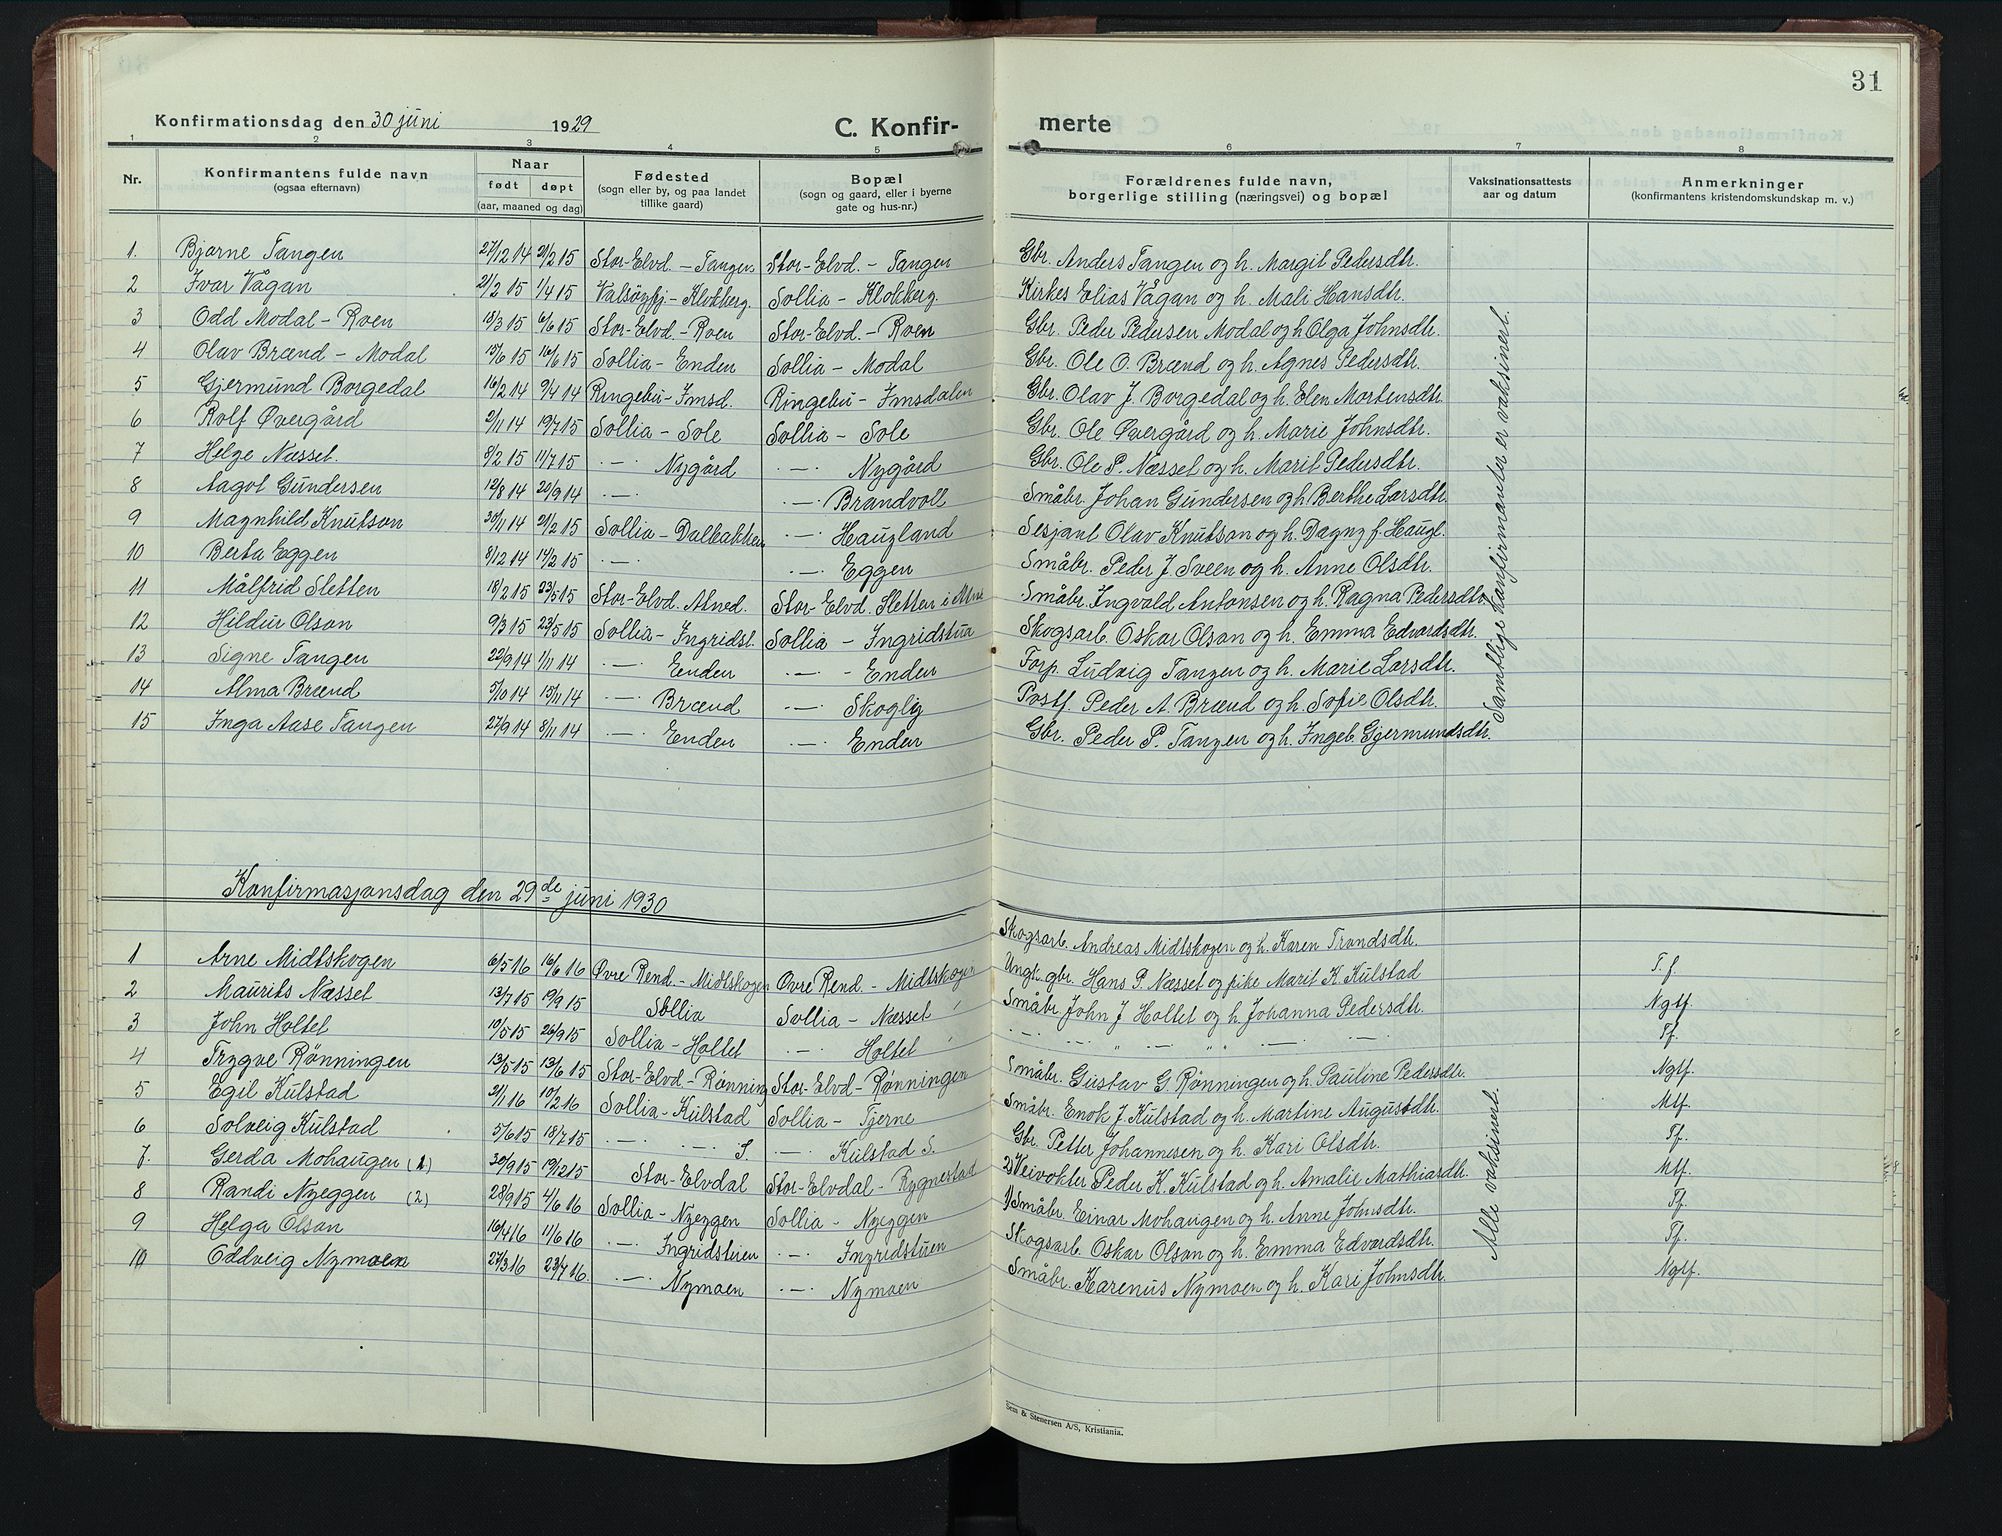 31
Konfirmationsdag den 30 juni 1929 C. Konfir- merte
1 2 3 4 5 6 7 8
Nr. Konfirmantens fulde navn (ogsaa efternavn) Naar født døpt (aar, maaned og dag) Fødested (sogn eller by, og paa landet tillike gaard) Bopæl (sogn og gaard, eller i byerne gate og hus-nr.) Forældrenes fulde navn, borgerlige stilling (næringsvei) og bopæl Vaksinationsattests aar og datum Anmerkninger (konfirmantens kristendomskundskap m. v.)
1. Bjarne Tangen 27/12 14 21/2 15 Stor-Elvd. - Tangen Stor-Elvd. - Tangen Gbr. Anders Tangen og h. Margit Pedersdtr.
2 Ivar Vågan 21/2 15 1/4 15 Valsøyfj - Klokberg. Sollia - Klokberg. Kirkes Elias Vågan og h. Mali Hansdtr.
3 Odd Modal - Roen 18/3 15 6/6 15 Stor-Elvd. - Roen Stor-Elvd. - Roen Gbr. Peder Pedersen Modal og h. Olga Johnsdtr.
4 Olav Brænd - Modal 15/6 15 Sollia - Enden Sollia - Modal Gbr. Ole O. Brænd og h. Agnes Pedersdtr.
5 Gjermund Borgedal 16/2 14 9/4 14 Ringebu - Imsd. Ringebu - Imsdalen Gbr. Olav J. Borgedal og h. Elen Mortensdtr
6 Rolf Øvergård 2/11 14 19/7 15 Sollia - Sole Sollia - Sole Gbr. Ole Øvergård og h. Marie Johnsdtr.
7 Helge Næsset. 8/2 15 11/7 15 - " - Nygård - " - Nygård Gbr. Ole P. Næsset og h. Marit Pedersdtr.
8 Aagot Gundersen 12/8 14 20/9 14 - " - - " - Brandvoll Småbr. Johan Gundersen og h. Berthe Larsdtr.
9 Magnhild Knutson 30/11 14 21/2 15 Sollia - Dalbakken - " - Haugland Sesjant Olav Knutson og h. Dagny f. Haugl.
10 Berta Eggen 8/12 14 14/2 15 - " - - " - Eggen Småbr. Peder J. Sveen og h. Anne Olsdtr.
11 Målfrid Sletten 18/2 15 23/5 15 Stor-Elvd. Atned. Stor-Elvd. Sletten i Småbr. Ingvald Antonsen og h. Ragna Pedersdtr
12 Hildur Olson 9/3 15 23/5 15 Sollia - Ingridst. Sollia - Ingridstua Skogsarb. Oskar Olson og h. Emma Edvardsdtr.
13 Signe Tangen 22/9 14 1/11 14 - " - Enden - " - Enden Forp. Ludvig Tangen og h. Marie Larsdtr.
14 Alma Brænd 5/10 14 15/11 14 - " - Brænd - " - Skogly Postf. Peder A. Brænd og h. Sofie Olsdtr.
15 Inga Aase Tangen 27/9 14 8/11 14 - " - Enden - " - Enden Gbr. Peder P. Tangen og h. Ingeb. Gjermundsdtr.
Samtlige konfirmanter er vaksinert.
Konfirmasjonsdag den 29de juni 1930
1 Arne Midtskogen 6/5 16 16/6 16 Øvre Rend. - Midtskogen Øvre Rend. - Midtskogen Skogsarb. Andreas Midtskogen og h. Karen Trondsdtr. T. f.
2 Maurits Næsset 13/7 15 19/9 15 Sollia Sollia - Næsset Ungk. gbr. Hans P. Næsset og pike Marit K. Kulstad Ngtf.
3 John Holtet 10/5 15 26/9 15 Sollia - Holtet - " - Holtet Småbr. John J. Holtet og h. Johanna Pedersdtr. Tf.
4 Trygve Rønningen 13/5 15 13/6 15 Stor-Elvd - Rønning Stor-Elvd - Rønningen Småbr. Gustav G. Rønningen og h. Pauline Pedersdtr. Ngtf.
5 Egil Kulstad 2/1 16 10/2 16 Sollia - Kulstad Sollia - Tjerne Småbr. Enok J. Kulstad og h. Martine Augustdtr. Mtf.
6 Solveig Kulstad 5/6 15 18/7 15 - " - - " - S. - " - Kulstad S. Gbr. Petter Johannesen og h. Kari Olsdtr. Tf.
7. Gerda Mohaugen (1) 30/9 15 19/12 15 Stor-Elvdal Stor-Elvdal - Rygnestad 2) Veivokter Peder K. Kulstad og h. Amalie Mathiasdtr. Mtf.
8 Randi Nyeggen (2) 28/9 15 4/6 16 Sollia - Nyeggen Sollia - Nyeggen 1) Småbr. Einar Mohaugen og h. Anne Johnsdtr. Tf.
9 Helga Olson 16/4 16 11/6 16 - " - Ingridstuen - " - Ingridstuen Skogsarb. Oskar Olson og h. Emma Edvardsdtr. Tf.
10 Oddveig Nymoen 27/3 16 23/4 16. - " - Nymoen - " - Nymoen Småbr. Karenus Nymoen og h. Kari Johnsdtr. Ngtf.
Alle vaksinert.
Sem & Stenersen A/S, Kristiania.